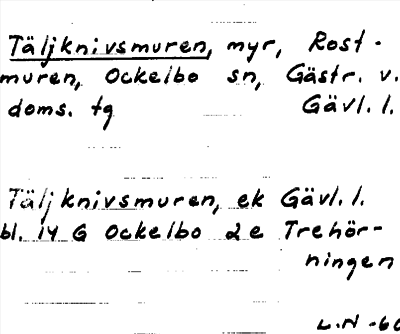 Täljknivsmuren, myr, Rost-
muren, Ockelbo sn, Gästr. v.
doms. tg Gävl. l.
Täljknivsmuren, ek Gävl. l.
bl. 14 G Ockelbo 2e Trehör-
ningen
L.N -60